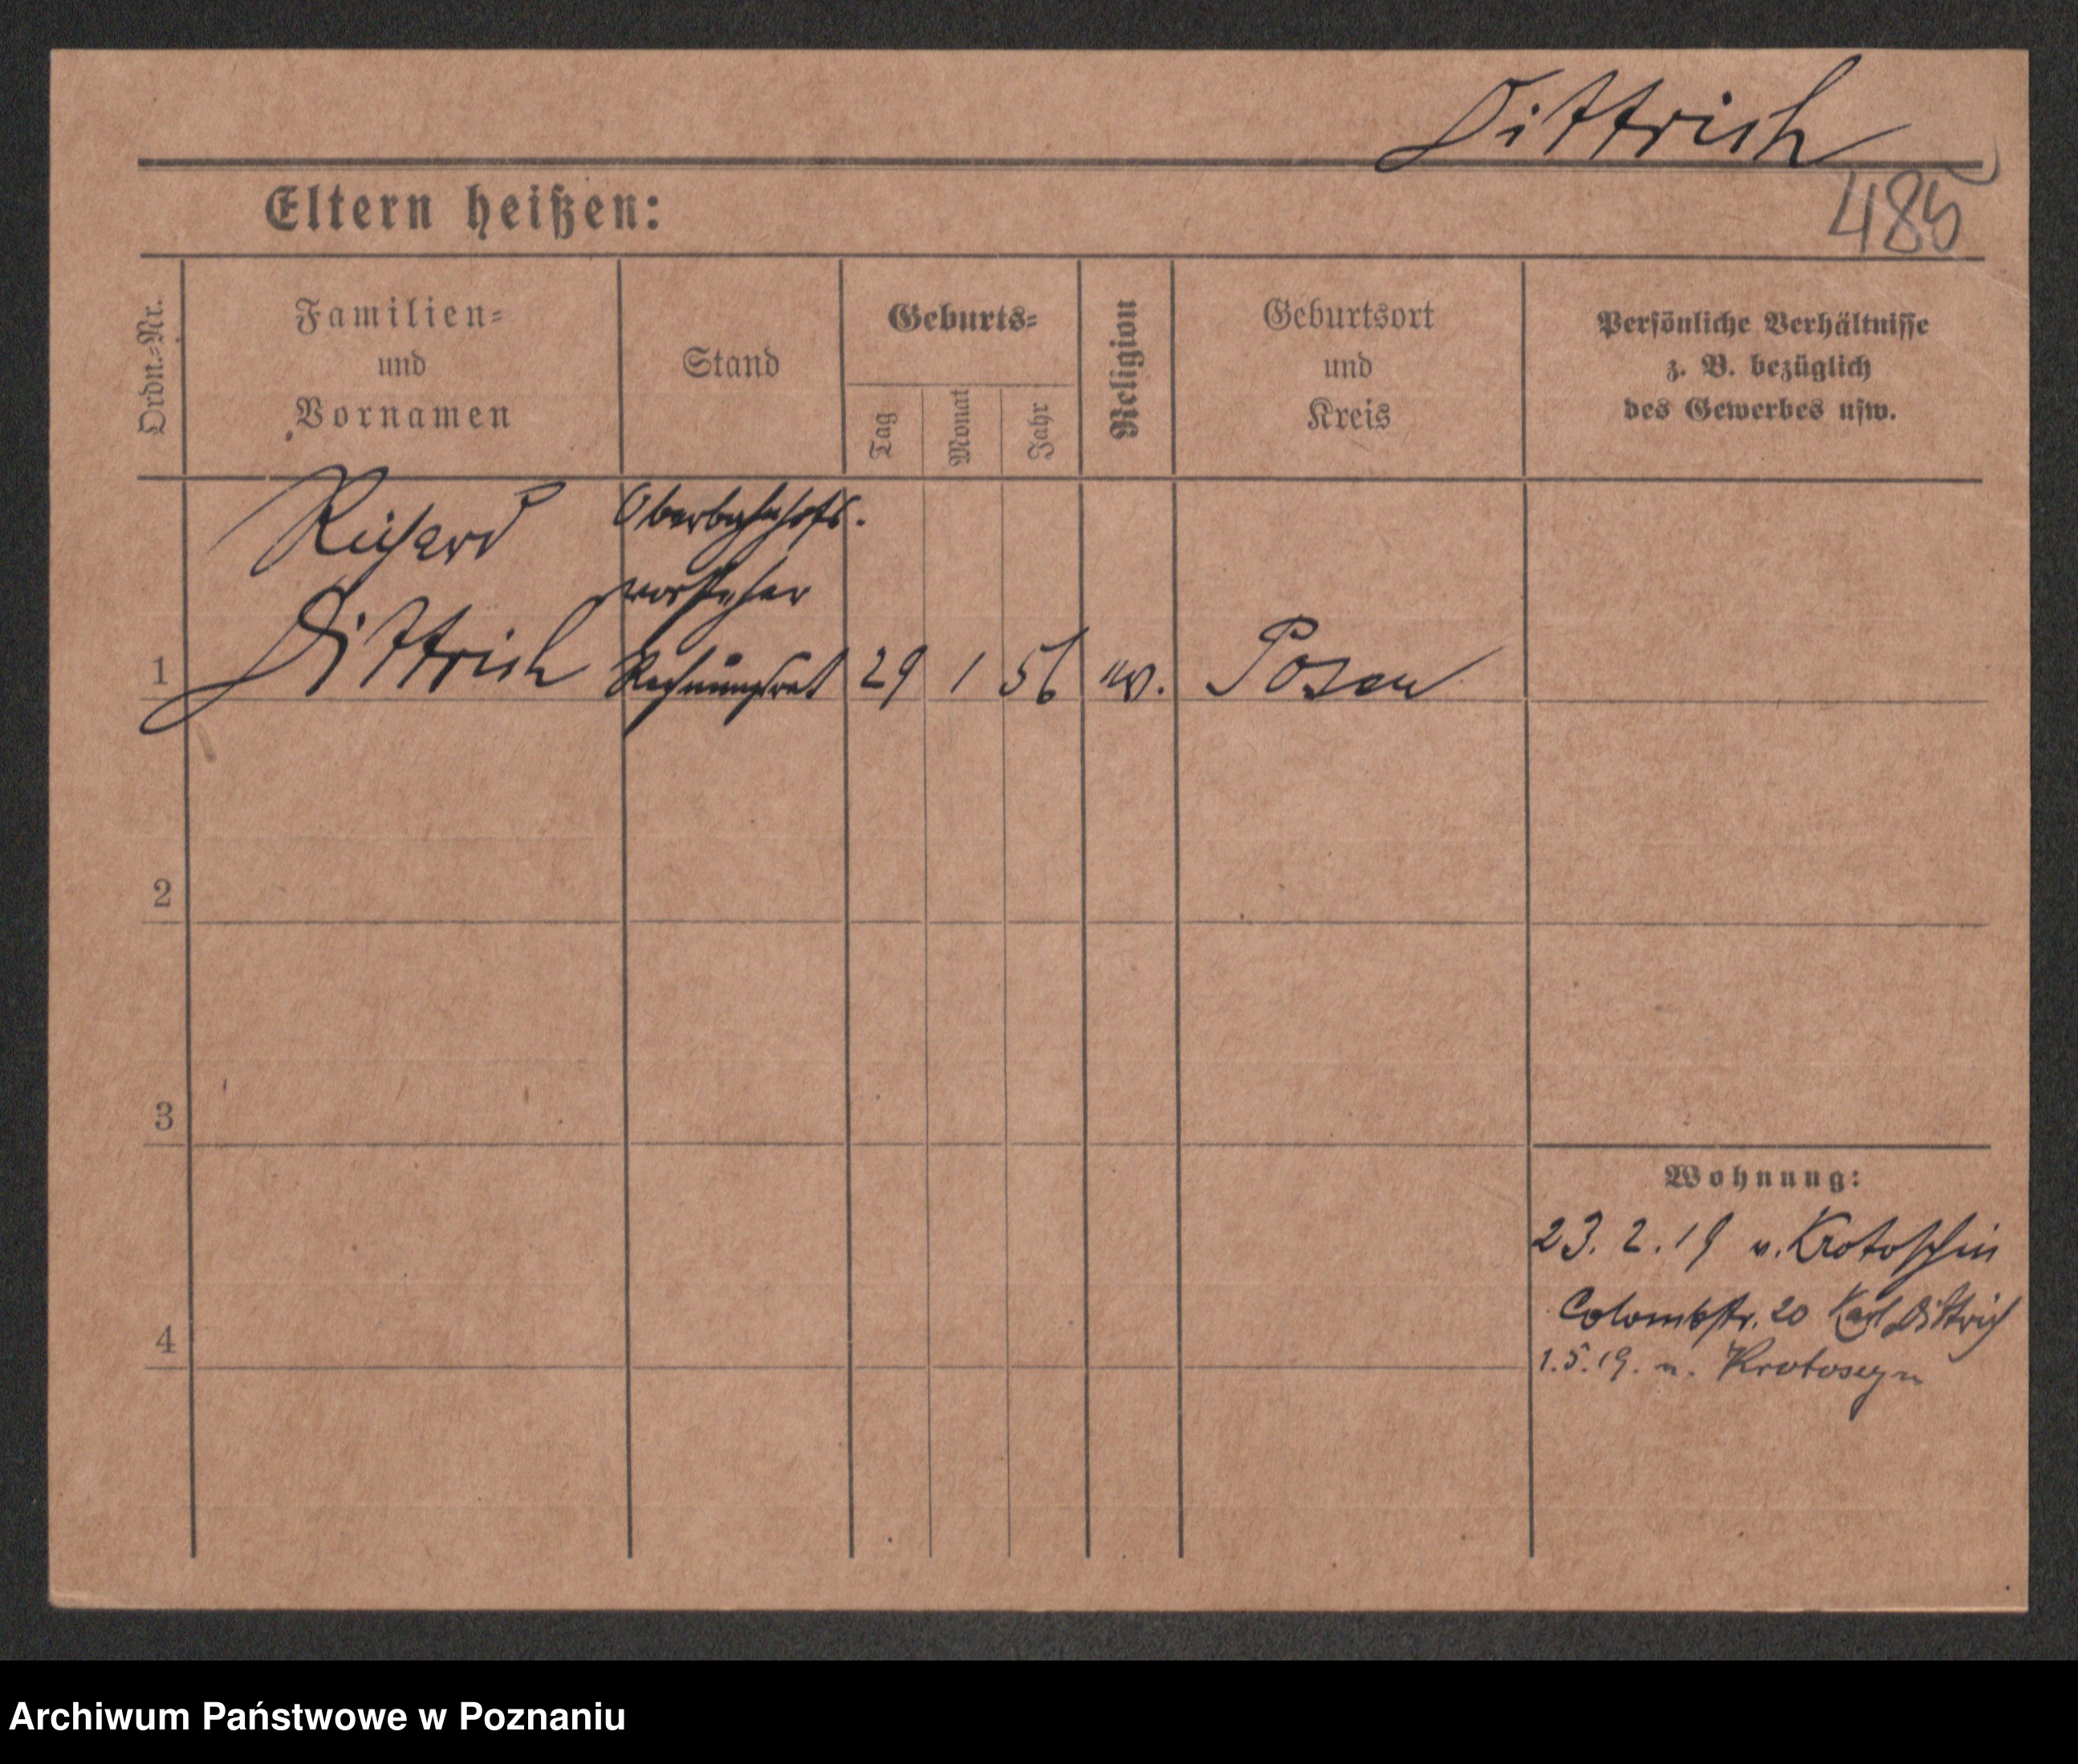 Dittrich
485
Eltern heißen:
Ordn.-Nr.
Familien-
und
Vornamen
Stand
Geburts-
Tag
Monat
Jahr
Religion
Geburtsort
und
Kreis
Persönliche Verhältnisse
z. B. bezüglich
des Gewerbes usw.
Richard
Dittrich
Oberbahnhofs-
vorsteher
Rechnungsrat
1
29
1
56
ev.
Posen
2
3
4
Wohnung:
23. 2. 19 v. Krotoschin
Colombstr. 20 Karl Dittrich
1. 5. 19. n. Krotoszyn
Archiwum Państwowe w Poznaniu